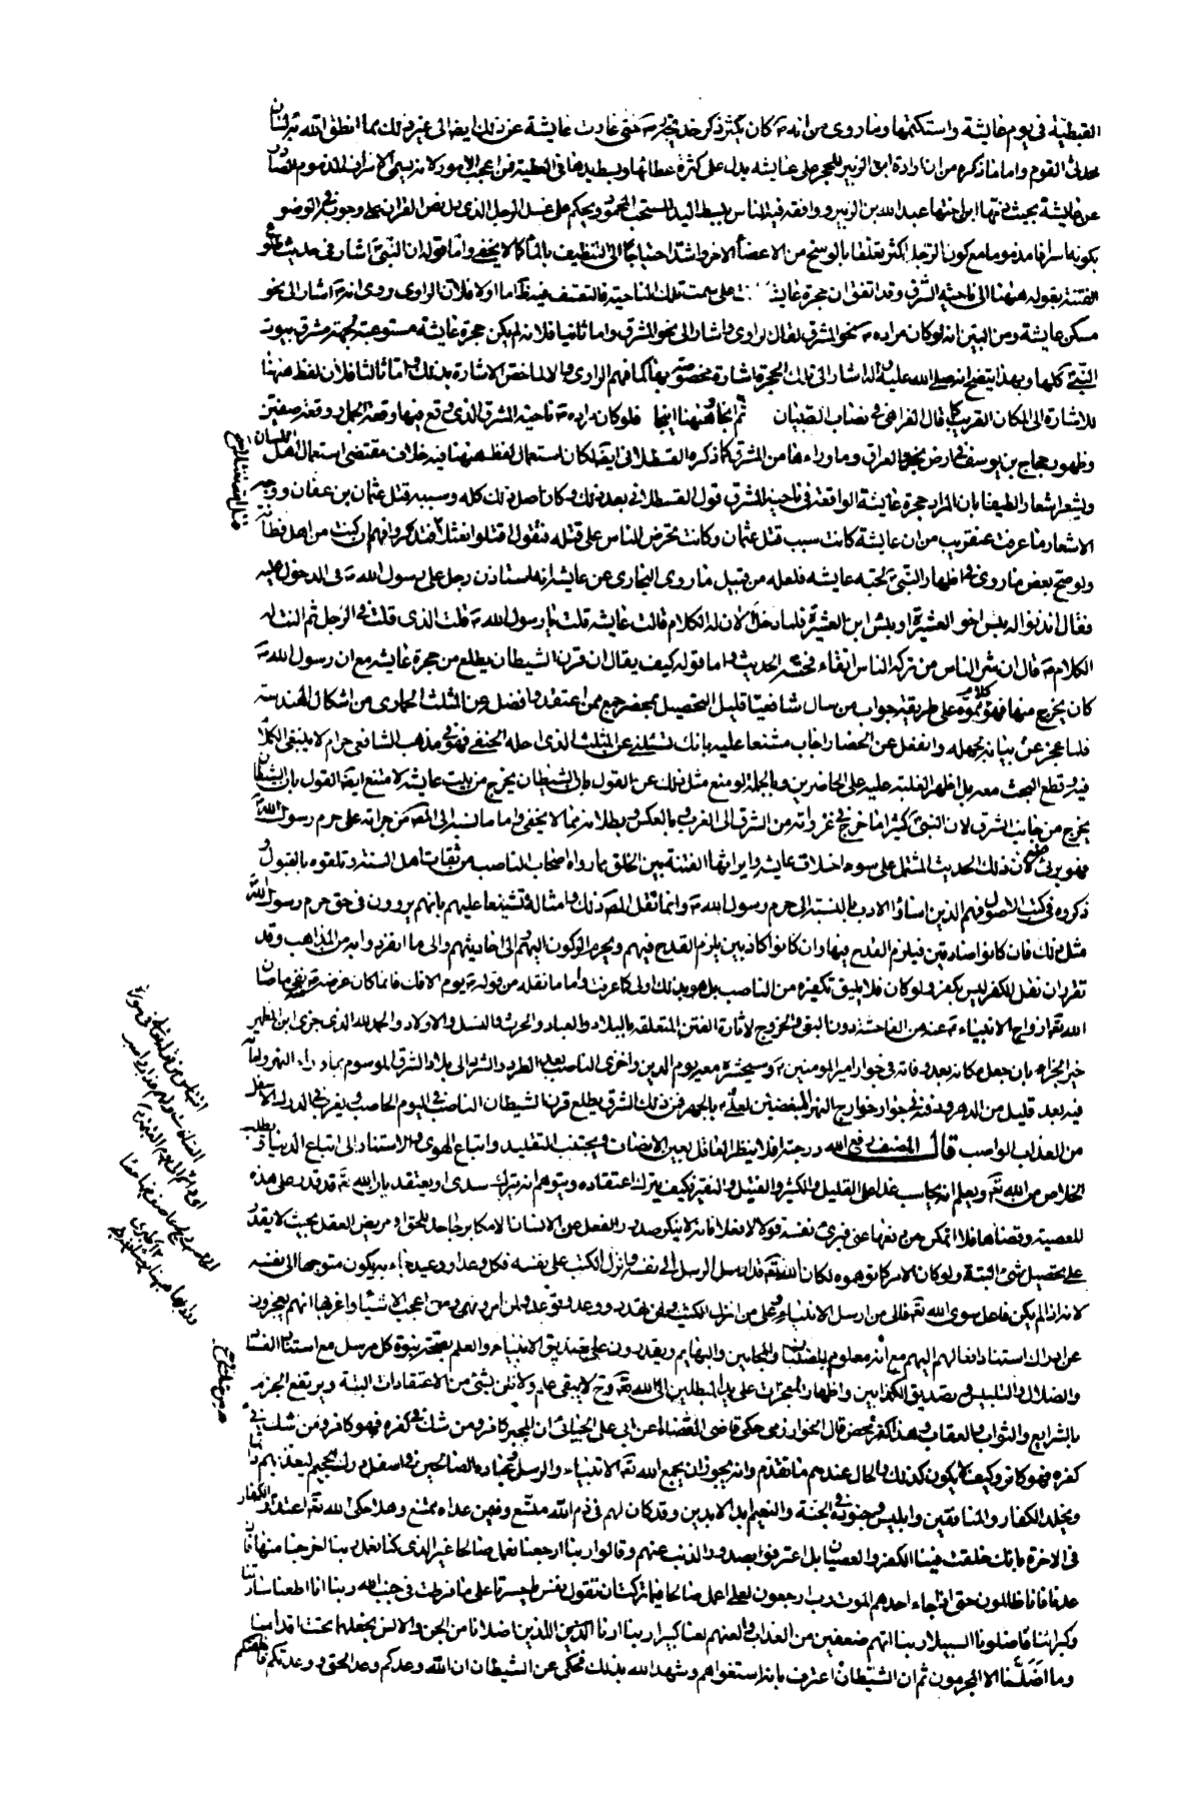 القبطية في يوم عايشة واستكتمها وما روى من انه كان يكثر ذكر خديجة حتى غارت عايشة عن ذلك ايضا الى غير ذلك مما انطق الله به لسان
محدثي القوم واما ما ذكره من ان ارادة ابن الزبير للحجر على عايشه يدل على كثرة عطائها وبسط يدها في العطية فمن اعجب الامور لانه يسمى الاسراف المذموم الصادر
عن عايشة بحيث ذمها ابن اختها عبد الله بن الزبير ووافقه فيه الناس ببسط اليد المستحب المحمود ويحكم على غسل الرجل الذي دل نص القران على وجوبه في الوضوء
بكونه اسرافا مذموما مع كون الرجل اكثر تعلقا بالوسخ من الاعضاء الاخر واشد احتياجا الى التنظيف بالماء كما لا يخفى واما قوله ان النبي اشار في حديث
الفتنة بقوله ههنا الى ناحية الشرق وقد اتفق ان حجرة عايشة على سمت تلك الناحية فالتعسف فيه ظ اما اولا فلان الراوي روى انه اشار الى نحو
مسكن عايشة ومن البين انه لو كان مراده نحو المشرق لقال الراوي واشار الى نحو المشرق واما ثانيا فلانه لم يكن حجرة عايشة مستوعبة لجهة مشرق بيوت
النبي كلها وبهذا يتضح انه صلى الله عليه واله اشار الى تلك الحجرة اشارة مخصوصة بها كما فهم الراوي والا لما خص الاشارة بذلك واما ثالثا فلان لفظ ههنا
للاشارة الى المكان القريب كما قال الفراهي في نصاب الصبيان فلو كان مراده ناحية المشرق الذي وقع فيها وقعة الجمل ووقعة صفين
وظهور حجاج بن يوسف في ارض نجد والعراق وما وراءها من المشرق كما ذكره القسطلاني ايضا لكان استعمال لفظ ههنا فيه خلاف مقتضى استعمال اهل اللسان
ويشعر اشعارا لطيفا بان المراد حجرة عايشة الواقعة في ناحية المشرق قول القسطلاني بعد ذلك وكان اصل ذلك كله وسببه قتل عثمان بن عفان ووجه
الاشعار ما عرفت عنقريب من ان عايشة كانت سبب قتل عثمان وكانت تحرض الناس على قتله فتقول اقتلوا نعثلا فقد كفر وافهم ان كنت من اهل فطانة
ولو صح بعض ما روى في اظهار النبي لحبه عايشه فلعله من قبيل ما روى البخاري عن عايشة انه استاذن رجل على رسول الله في الدخول عليه
فقال ائذنوا له بئس اخو العشيرة او بئس ابن العشيرة فلما دخل الان له الكلام قالت عايشه قلت يا رسول الله قلت الذي قلت في الرجل ثم النت له
الكلام قال ان شر الناس من تركه الناس اتقاء فحشه الحديث واما قوله كيف يقال ان قرن الشيطان يطلع من حجرة عايشه مع ان رسول الله
كان يخرج منها فهو كلام مموه على طريقة جواب من سال شافعيا قليل التحصيل بمحضر جمع ممن اعتقدوا فضل عن المثلث الحماري من اشكال الهندسة
فلما عجز عن بيانه لجهله وانفعل عن الحضار اجاب مشنعا عليه بانك تسئلني عن المثلث الذي احله الحنفي فهو في مذهب الشافعي حرام لا ينبغي الكلام
فيه وقطع البحث معه بل اظهر الغلبة عليه على الحاضرين وبالجملة لو منع مثل ذلك عن القول بان الشيطان يخرج من بيت عايشه لامتنع ايضا القول بان الشيطان
يخرج من جانب الشرق لان النبي كثيرا ما خرج في غزواته من الشرق الى الغرب وبالعكس وبطلانه مما لا يخفى واما ما نسبه الى المص من جراته على حرم رسول الله
فهو بريء منه لان ذلك الحديث المشتمل على سوء اخلاق عايشه وايراثها الفتنة بين الخلق مما رواه اصحاب الناصب من ثقات اهل السنة وتلقوه بالقبول و
ذكروه في كتب الاصول فهم الذين اساؤا الادب بالنسبة الى حرم رسول الله وانما نقل المص ذلك وامثاله تشنيعا عليهم بانهم يروون في حق حرم رسول الله
مثل ذلك فان كانوا صادقين فيلزم القدح فيها وان كانوا كاذبين يلزم القدح فيهم ويحرم الركون اليهم والى احاديثهم والى ما انفردوا به من المذاهب وقد
تقرر ان نقل الكفر ليس بكفر ولو كان فلا يليق تكفيره من الناصب بل هو بذلك اولى كما عرفت واما ما نقله من قوله يوم الافك فانما كان غرضه نفي ما صان
الله تعالى ازواج الانبياء عنه من الفاحشة دون البغي والخروج لاثارة الفتن المتعلقة بالبلاد والعباد والحرث والنسل والاولاد والحمد لله الذي جزى ابن المطهر
خير الجزاء بان جعل مكانه بعد وفاته في جوار امير المومنين وسيحشره معه يوم الدين واخزى الناصب بعد الطرد والشر الى بلاد الشرق الموسوم بماوراء النهر واماته
فيه بعد قليل من الدهر ودفنه في جوار خوارج النهر المبغضين لعلي بالجهر فمن ذلك الشرق يطلع قرن الشيطان الناصب في اليوم الحاصب ويقر في الدرك الاسفل
من العذاب الواصب قال المصنف رفع الله درجته افلا ينظر العاقل بعين الانصاف ويجتنب التقليد واتباع الهوى والاستناد الى اتباع الدنيا ويطلب
الخلاص من الله تعالى ويعلم انه يحاسب غدا على القليل والكثير والفتيل والنقير فكيف يترك اعتقاده ويتوهم انه يترك سدى او يعتقد بان الله تعالى قدر على هذه
المعصية وقضاها فلا اتمكن من دفعها عني فيبرئ نفسه قولا لا فعلا فانه لا ينكر صدور الفعل عن الانسان الا مكابر جاحد للحق او مريض العقل بحيث لا يقدر
على تحصيل شيء البتة ولو كان الامر كما توهموه لكان الله تعالى قد ارسل الرسل الى نفسه وانزل الكتب على نفسه فكل وعد ووعيد جاء به يكون متوجها الى نفسه
لانه اذا لم يكن فاعل سوى الله تعالى فالى من ارسل الانبياء وعلى من انزل الكتب ولمن تهدد ووعد وتوعد ولمن امر ونهى ومن اعجب الاشياء واغربها انهم يعجزون
عن ادراك استناد افعالهم اليهم مع انه معلوم للصبيان والمجانين والبهايم ويقدرون على تصديق الانبياء والعلم بصحة نبوة كل مرسل مع استناد الفساد
والضلال والتلبيس وتصديق الكذابين واظهار المعجزات على يد المبطلين الى الله تعالى وح لا يبقى علم ولا ظن بشيء من الاعتقادات البتة ويرتفع الجزم
بالشرايع والثواب والعقاب وهذا كفر محض قال الخوارزمي حكى قاضي القضاة عن ابي علي الجبائي ان المجبر كافر ومن شك في كفره فهو كافر ومن شك في
كفره فهو كافر وكيف لا يكون كذلك والحال عندهم ما تقدم وانه يجوز ان يجمع الله تعالى الانبياء والرسل وعباده الصالحين في اسفل درك الجحيم يعذبهم دائما
ويخلد الكفار والمنافقين وابليس وجنوده في الجنة والنعيم ابد الابدين وقد كان لهم في ذم الله متسع وفيمن عداه ممتنع وهلا حكى الله تعالى اعتذار الكفار
في الاخرة بانك خلقت فينا الكفر والعصيان بل اعترفوا بصدور الذنب عنهم وقالوا ربنا ارجعنا نعمل صالحا غير الذي كنا نعمل ربنا اخرجنا منها فان
عدنا فانا ظالمون حتى اذا جاء احدهم الموت رب ارجعون لعلي اعمل صالحا فيما تركت ان تقول نفس يا حسرتا على ما فرطت في جنب الله ربنا انا اطعنا سادتنا
وكبرائنا فاضلونا السبيلا ربنا اتهم ضعفين من العذاب والعنهم لعنا كبيرا ربنا ارنا الذين اللذين اضلانا من الجن والانس نجعلهما تحت اقدامنا
وما اضلنا الا المجرمون ثم ان الشيطان اعترف بانه استغواهم وشهد الله بذلك فحكى عن الشيطان ان الله وعدكم وعد الحق ووعدتكم فاخلفتكم